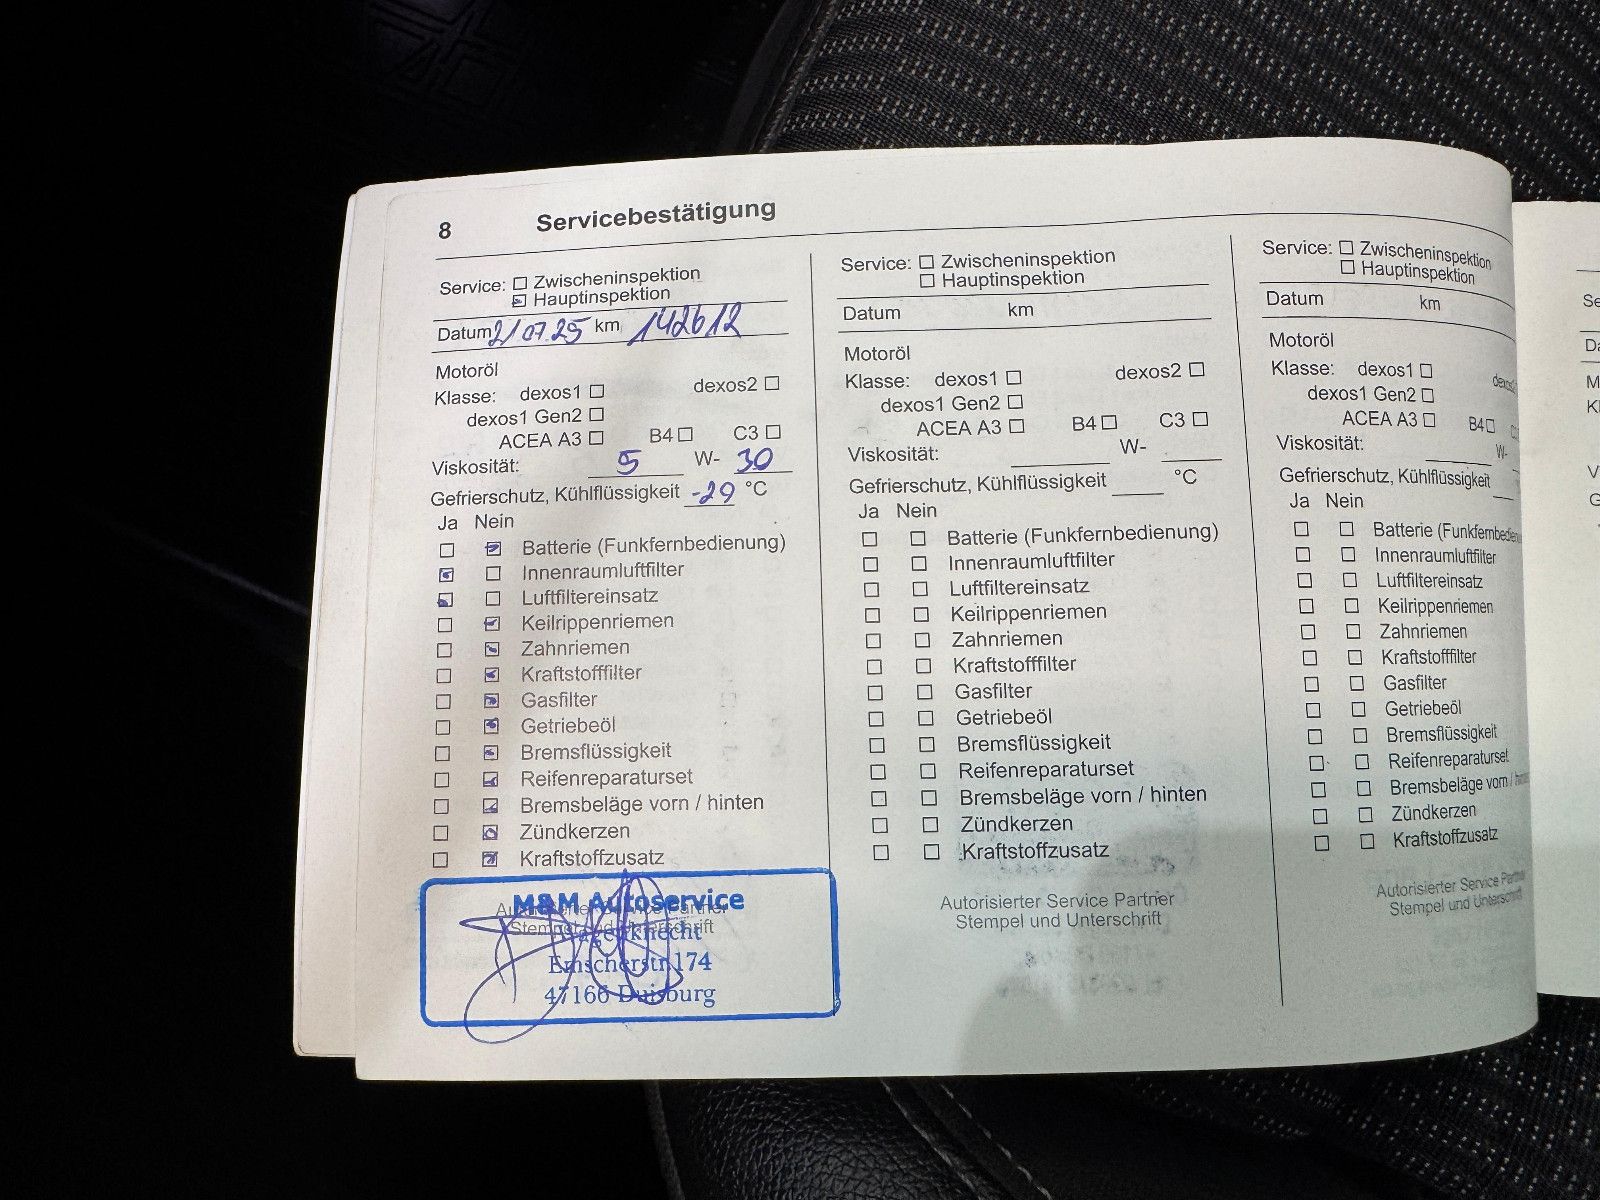 8 Servicebestätigung
Service: ☐ Zwischeninspektion
☑ Hauptinspektion
Datum 21/07.25 km 142612
Motoröl
Klasse: dexos1 ☐ dexos2 ☐
dexos1 Gen2 ☐
ACEA A3 ☐ B4 ☐ C3 ☐
Viskosität: 5 W- 30
Gefrierschutz, Kühlflüssigkeit -29 °C
Ja Nein
☐ ☑ Batterie (Funkfernbedienung)
☑ ☐ Innenraumluftfilter
☑ ☐ Luftfiltereinsatz
☐ ☑ Keilrippenriemen
☐ ☑ Zahnriemen
☐ ☑ Kraftstofffilter
☐ ☑ Gasfilter
☐ ☑ Getriebeöl
☐ ☑ Bremsflüssigkeit
☐ ☑ Reifenreparaturset
☐ ☑ Bremsbeläge vorn / hinten
☐ ☑ Zündkerzen
☐ ☑ Kraftstoffzusatz
Autorisierter Service Partner
Stempel und Unterschrift
M&M Autoservice
Emscherstr.174
47166 Duisburg
Service: ☐ Zwischeninspektion
☐ Hauptinspektion
Datum km
Motoröl
Klasse: dexos1 ☐ dexos2 ☐
dexos1 Gen2 ☐
ACEA A3 ☐ B4 ☐ C3 ☐
Viskosität: W-
Gefrierschutz, Kühlflüssigkeit °C
Ja Nein
☐ ☐ Batterie (Funkfernbedienung)
☐ ☐ Innenraumluftfilter
☐ ☐ Luftfiltereinsatz
☐ ☐ Keilrippenriemen
☐ ☐ Zahnriemen
☐ ☐ Kraftstofffilter
☐ ☐ Gasfilter
☐ ☐ Getriebeöl
☐ ☐ Bremsflüssigkeit
☐ ☐ Reifenreparaturset
☐ ☐ Bremsbeläge vorn / hinten
☐ ☐ Zündkerzen
☐ ☐ Kraftstoffzusatz
Autorisierter Service Partner
Stempel und Unterschrift
Service: ☐ Zwischeninspektion
☐ Hauptinspektion
Datum km
Motoröl
Klasse: dexos1 ☐
dexos1 Gen2 ☐
ACEA A3 ☐ B4 ☐
Viskosität: W-
Gefrierschutz, Kühlflüssigkeit
Ja Nein
☐ ☐ Batterie
☐ ☐ Innenraumluftfilter
☐ ☐ Luftfiltereinsatz
☐ ☐ Keilrippenriemen
☐ ☐ Zahnriemen
☐ ☐ Kraftstofffilter
☐ ☐ Gasfilter
☐ ☐ Getriebeöl
☐ ☐ Bremsflüssigkeit
☐ ☐ Reifenreparaturset
☐ ☐ Bremsbeläge vorn /
☐ ☐ Zündkerzen
☐ ☐ Kraftstoffzusatz
Autorisierter Service
Stempel und Unterschrift